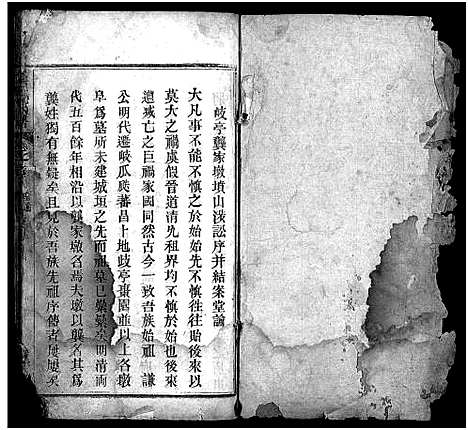 岐亭龔家墩墳山涉訟序并結案堂諭
大凡事不能不慎之於始始先不慎往往貽後來以
莫大之禍虞假晉道清先租界均不慎於始也後來
遭滅亡之巨禍家國同然古今一致吾族始祖　謙
公明代遷岐瓜瓞蕃昌上地岐亭棗園並以上各墩
阜爲墓所未建城垣之先而祖墓已纍纍矣明清兩
代五百餘年相沿以龔家墩名焉夫墩以龔名其爲
龔姓獨有無疑矣且見於吾族先祖序傳者屢屢矣